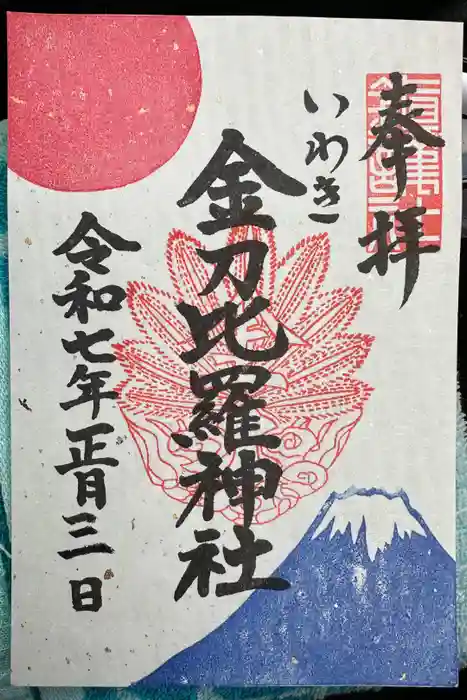 奉拝
いわき
金刀比羅神社
令和七年正月三日